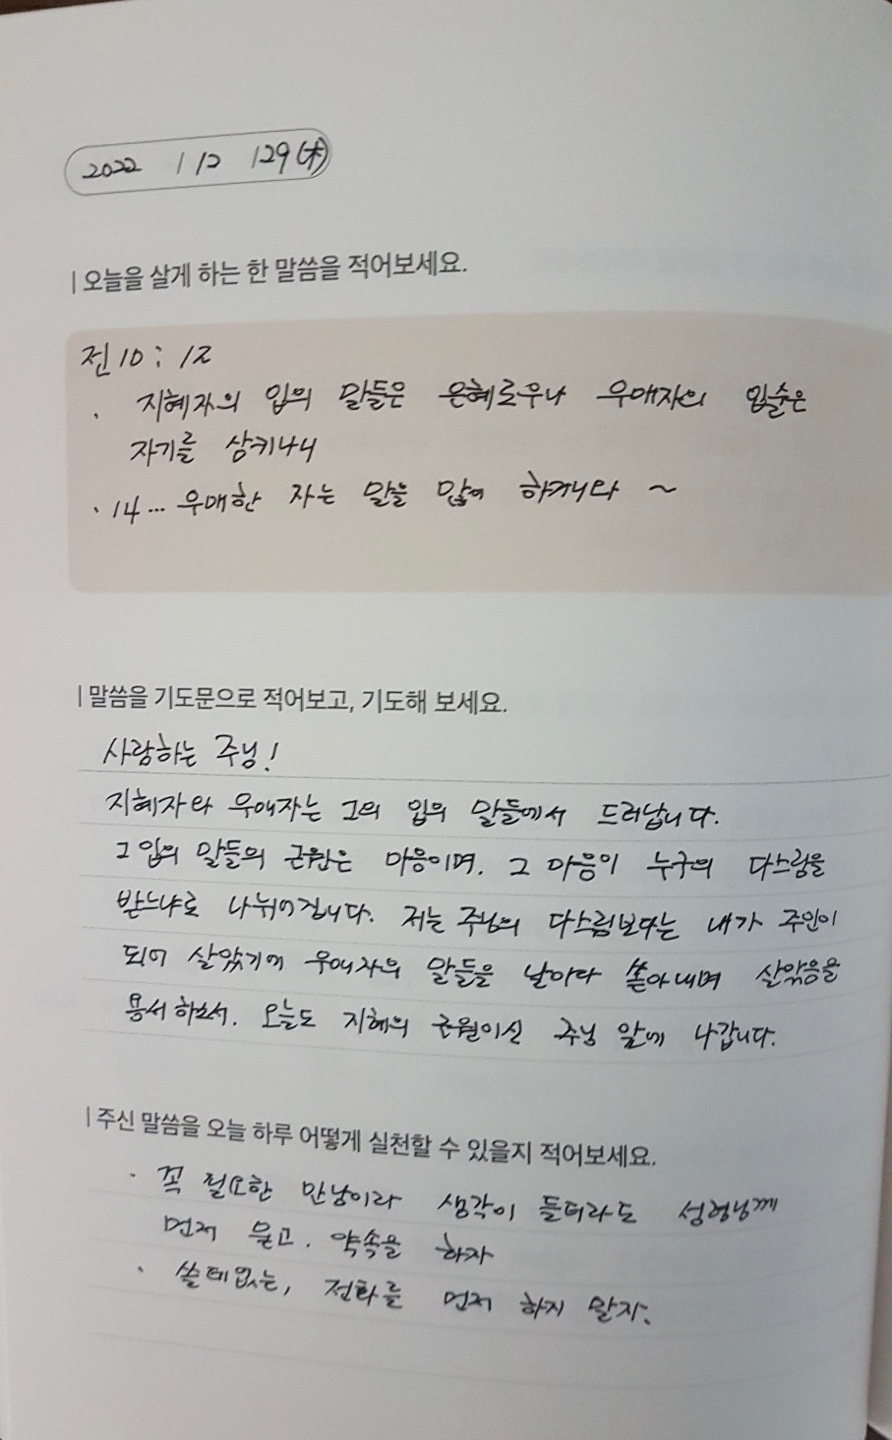 2022 / 12 / 29 (木)
| 오늘을 살게 하는 한 말씀을 적어보세요.
전 10 : 12
· 지혜자의 입의 말들은 은혜로우나 우매자의 입술은
자기를 삼키나니
· 14 … 우매한 자는 말을 많이 하거니와 ~
| 말씀을 기도문으로 적어보고, 기도해 보세요.
사랑하는 주님!
지혜자와 우매자는 그의 입의 말들에서 드러납니다.
그 입의 말들의 근원은 마음이며, 그 마음이 누구의 다스림을
받느냐로 나뉘어집니다. 저는 주님의 다스림보다는 내가 주인이
되어 살았기에 우매자의 말들을 날마다 쏟아내며 살았음을
용서하소서. 오늘도 지혜의 근원이신 주님 앞에 나갑니다.
| 주신 말씀을 오늘 하루 어떻게 실천할 수 있을지 적어보세요.
· 꼭 필요한 만남이라 생각이 들더라도 성령님께
먼저 묻고. 약속을 하자
· 쓸데없는, 전화를 먼저 하지 말자.